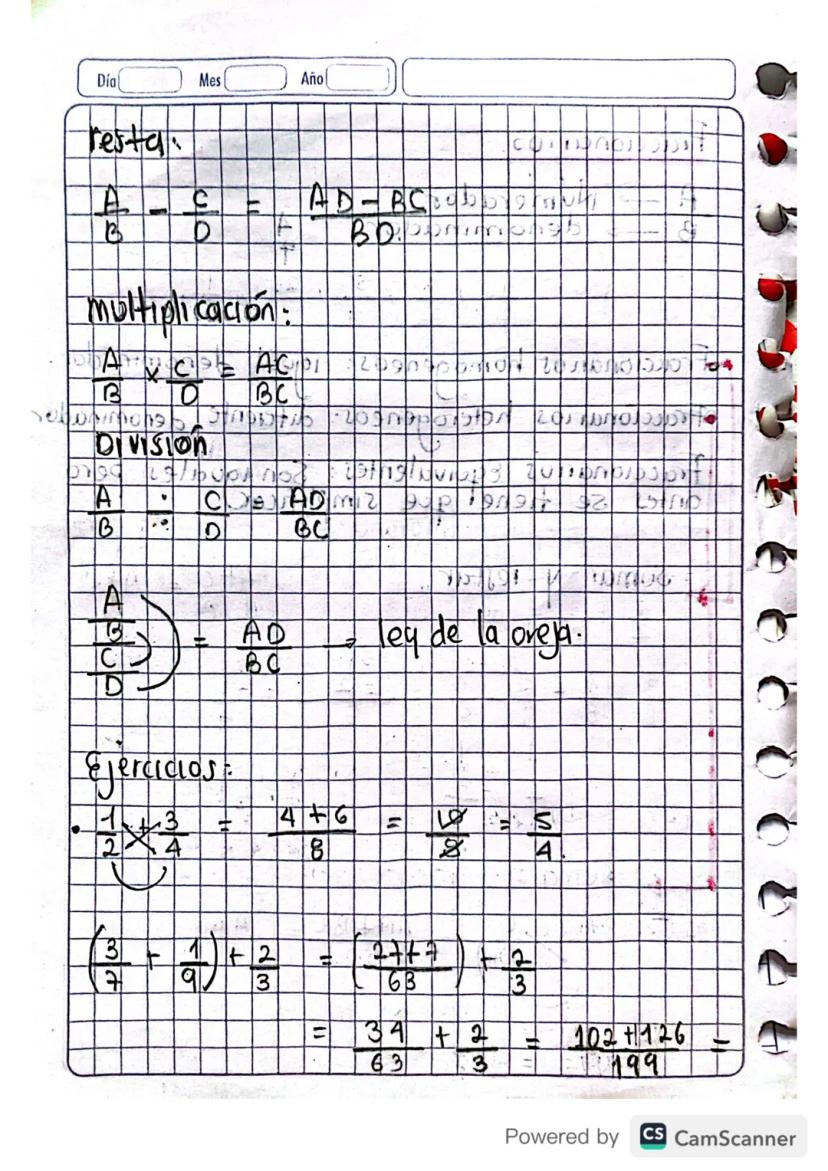 Día Mes Año
resta:
A/B - C/D = AD - BC / BD.
multiplicación:
A/B x C/D = AC/BC
División
A/B ÷ C/D = AD/BC
A/B / C/D = AD/BC → ley de la oreja.
Ejercicios:
• 1/2 + 3/4 = 4 + 6 / 8 = 10/8 = 5/4.
(3/7 + 1/9) + 2/3 = (27+7 / 63) + 2/3
= 34/63 + 2/3 = 102 + 126 / 199 =
Powered by CS CamScanner